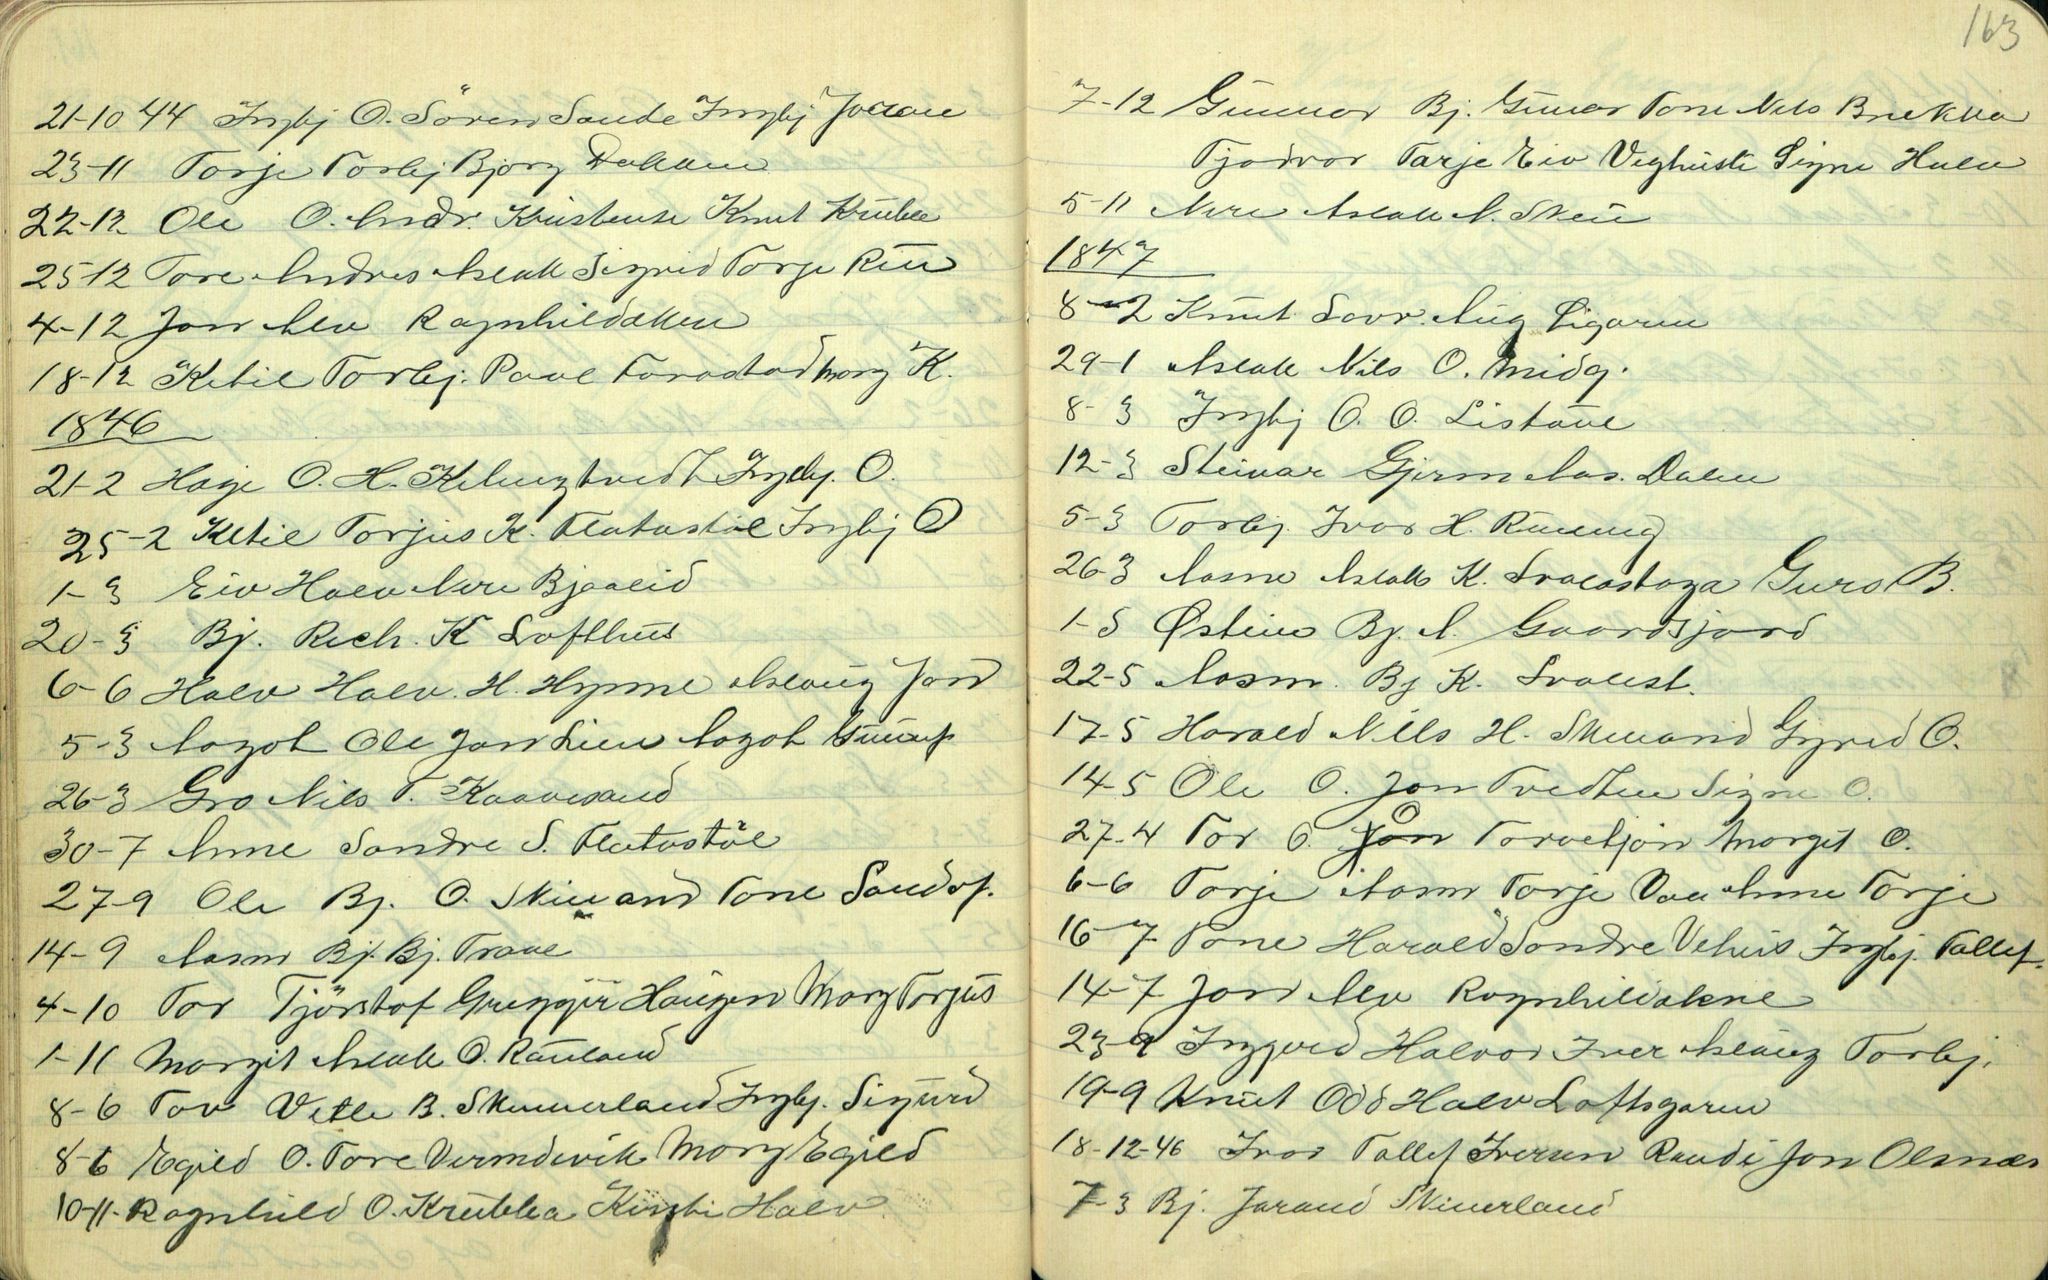 21-10 44 Ingbj O. Sören Sande Ingbj Joran
23-11 Torje Torbj Bjørg Dalane
22-12 Ole O. Andr. Kristense Knut
25-12 Tore Andres Aslak Sigrid Torje Rui
4-12 Jon Alv Ragnhildaken
18-12 Ketil Torbj. Paal Farastad Marg K.
1846
21-2 Hage O. H. Ingbj. O.
25-2 Ketil Torjus K. Flatastöl Ingbj O
1-3 Eiv Halv Nere Bjaaleid
20-3 Bj. Rich. K Lofthus
6-6 Halv Halv. H. Hynne Aslaug Jon
5-3 Aagot Ole Jon Lien Aagot
26-3 Gro Nils T. Kaavesand
30-7 Anne Sondre S. Flatastöl
27-9 Ole Bj. O. Skinand Tone
14-9 Aasm Bj. Bj. Traae
4-10 Tor Tjöstof Haugen Marg Torjus
1-11 Margit Aslak O. Rauland
8-6 Tov Vetle B. Skinnerland Ingbj. Sigurd
8-6 Egild O. Tore Marg Egild
10-11- Ragnhild O. Krubba Halv
163
7-12 Gunnar Bj. Gunar Tone Nils
Tjodvor Tarje Eiv Signe Halv
5-11 Nere Aslak A. Skeie
1847
8-2 Knut Sovr. Aug Ligaren
29-1 Aslak Nils O. Midg.
8-3 Ingbj O. O. Listaul
12-3 Steinar Gjerm Aas. Dalen
5-3 Torbj. Ivar H.
26-3 Aasne Aslak K. Svalastoga Guro B.
1-5 Østein Bj. A. Gaardsjord
22-5 Aasm. Bj K. Svalast.
17-5 Harald Nils H. Skinand Gyrid O.
14-5 Ole O. Jon Tvedten Signe O.
27-4 Tor O. Jon O Torvetjön Margit O.
6-6 Torje Aasm Torje Vaa Anne Torje
16-7 Tone Harald Sondre Vehus Ingbj. Tallef.
14-7 Jon Alv Ragnhildakne
23-9 Ingjerd Halvor Iver Aslaug Torbj.
19-9 Knut Odd Halv Loftsgaren
18-12-46 Ivar Tallef Iversen Randi Jon Olsnes
7-3 Bj. Jarand Skinerland